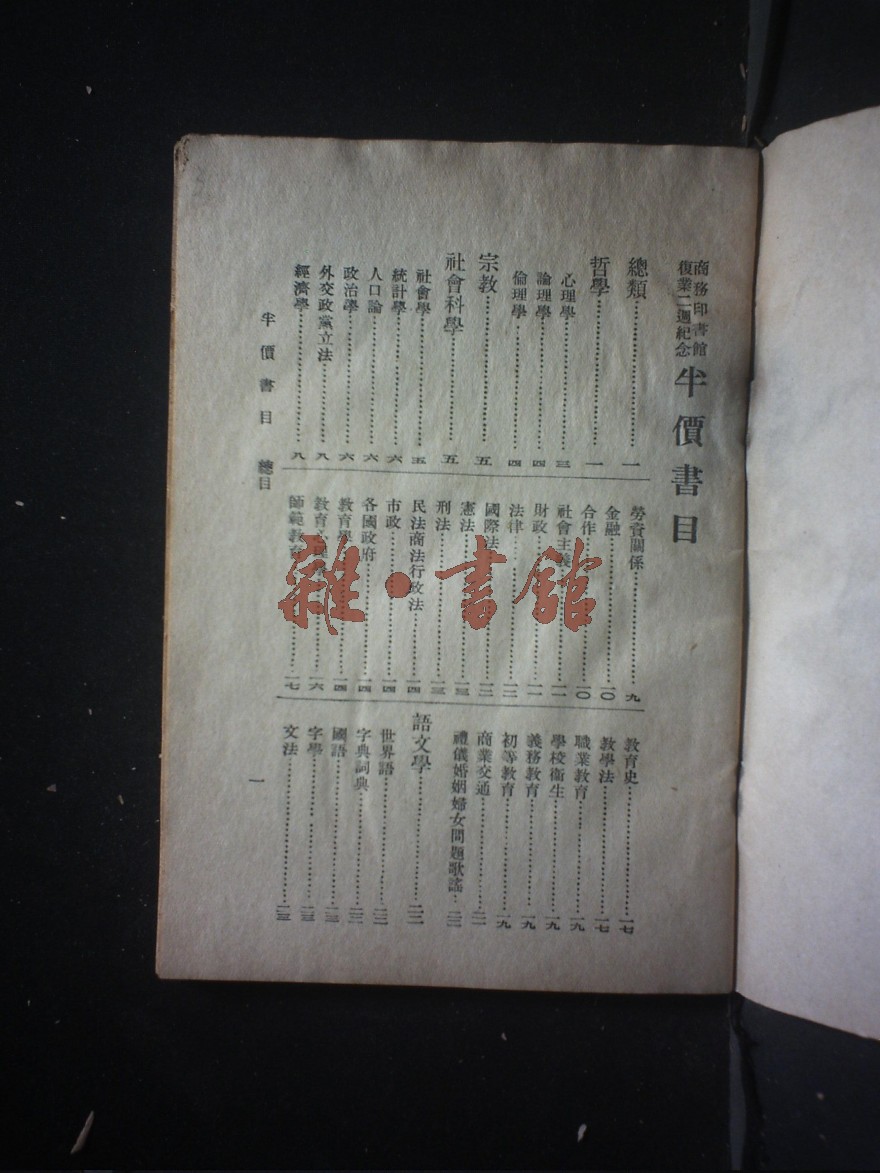 商務印書館
復業二週紀念
半價書目
總類⋯⋯一
哲學⋯⋯一
心理學⋯⋯三
論理學⋯⋯四
倫理學⋯⋯四
宗教⋯⋯五
社會科學⋯⋯五
社會學⋯⋯五
統計學⋯⋯六
人口論⋯⋯六
政治學⋯⋯六
外交政黨立法⋯⋯八
經濟學⋯⋯八
勞資關係⋯⋯九
金融⋯⋯一〇
合作⋯⋯一〇
社會主義⋯⋯一一
財政⋯⋯一一
法律⋯⋯一二
國際法⋯⋯一二
憲法⋯⋯一三
刑法⋯⋯一三
民法商法行政法⋯⋯一四
市政⋯⋯一四
各國政府⋯⋯一四
教育學⋯⋯一四
教育心理⋯⋯一六
師範教育⋯⋯一七
教育史⋯⋯一七
教學法⋯⋯一七
職業教育⋯⋯一九
學校衛生⋯⋯一九
義務教育⋯⋯一九
初等教育⋯⋯一九
商業交通⋯⋯二一
禮儀婚姻婦女問題歌謠⋯⋯二二
語文學⋯⋯二二
世界語⋯⋯二二
字典詞典⋯⋯二二
國語⋯⋯二三
字學⋯⋯二三
文法⋯⋯二三
半價書目 總目
一
雜·書館